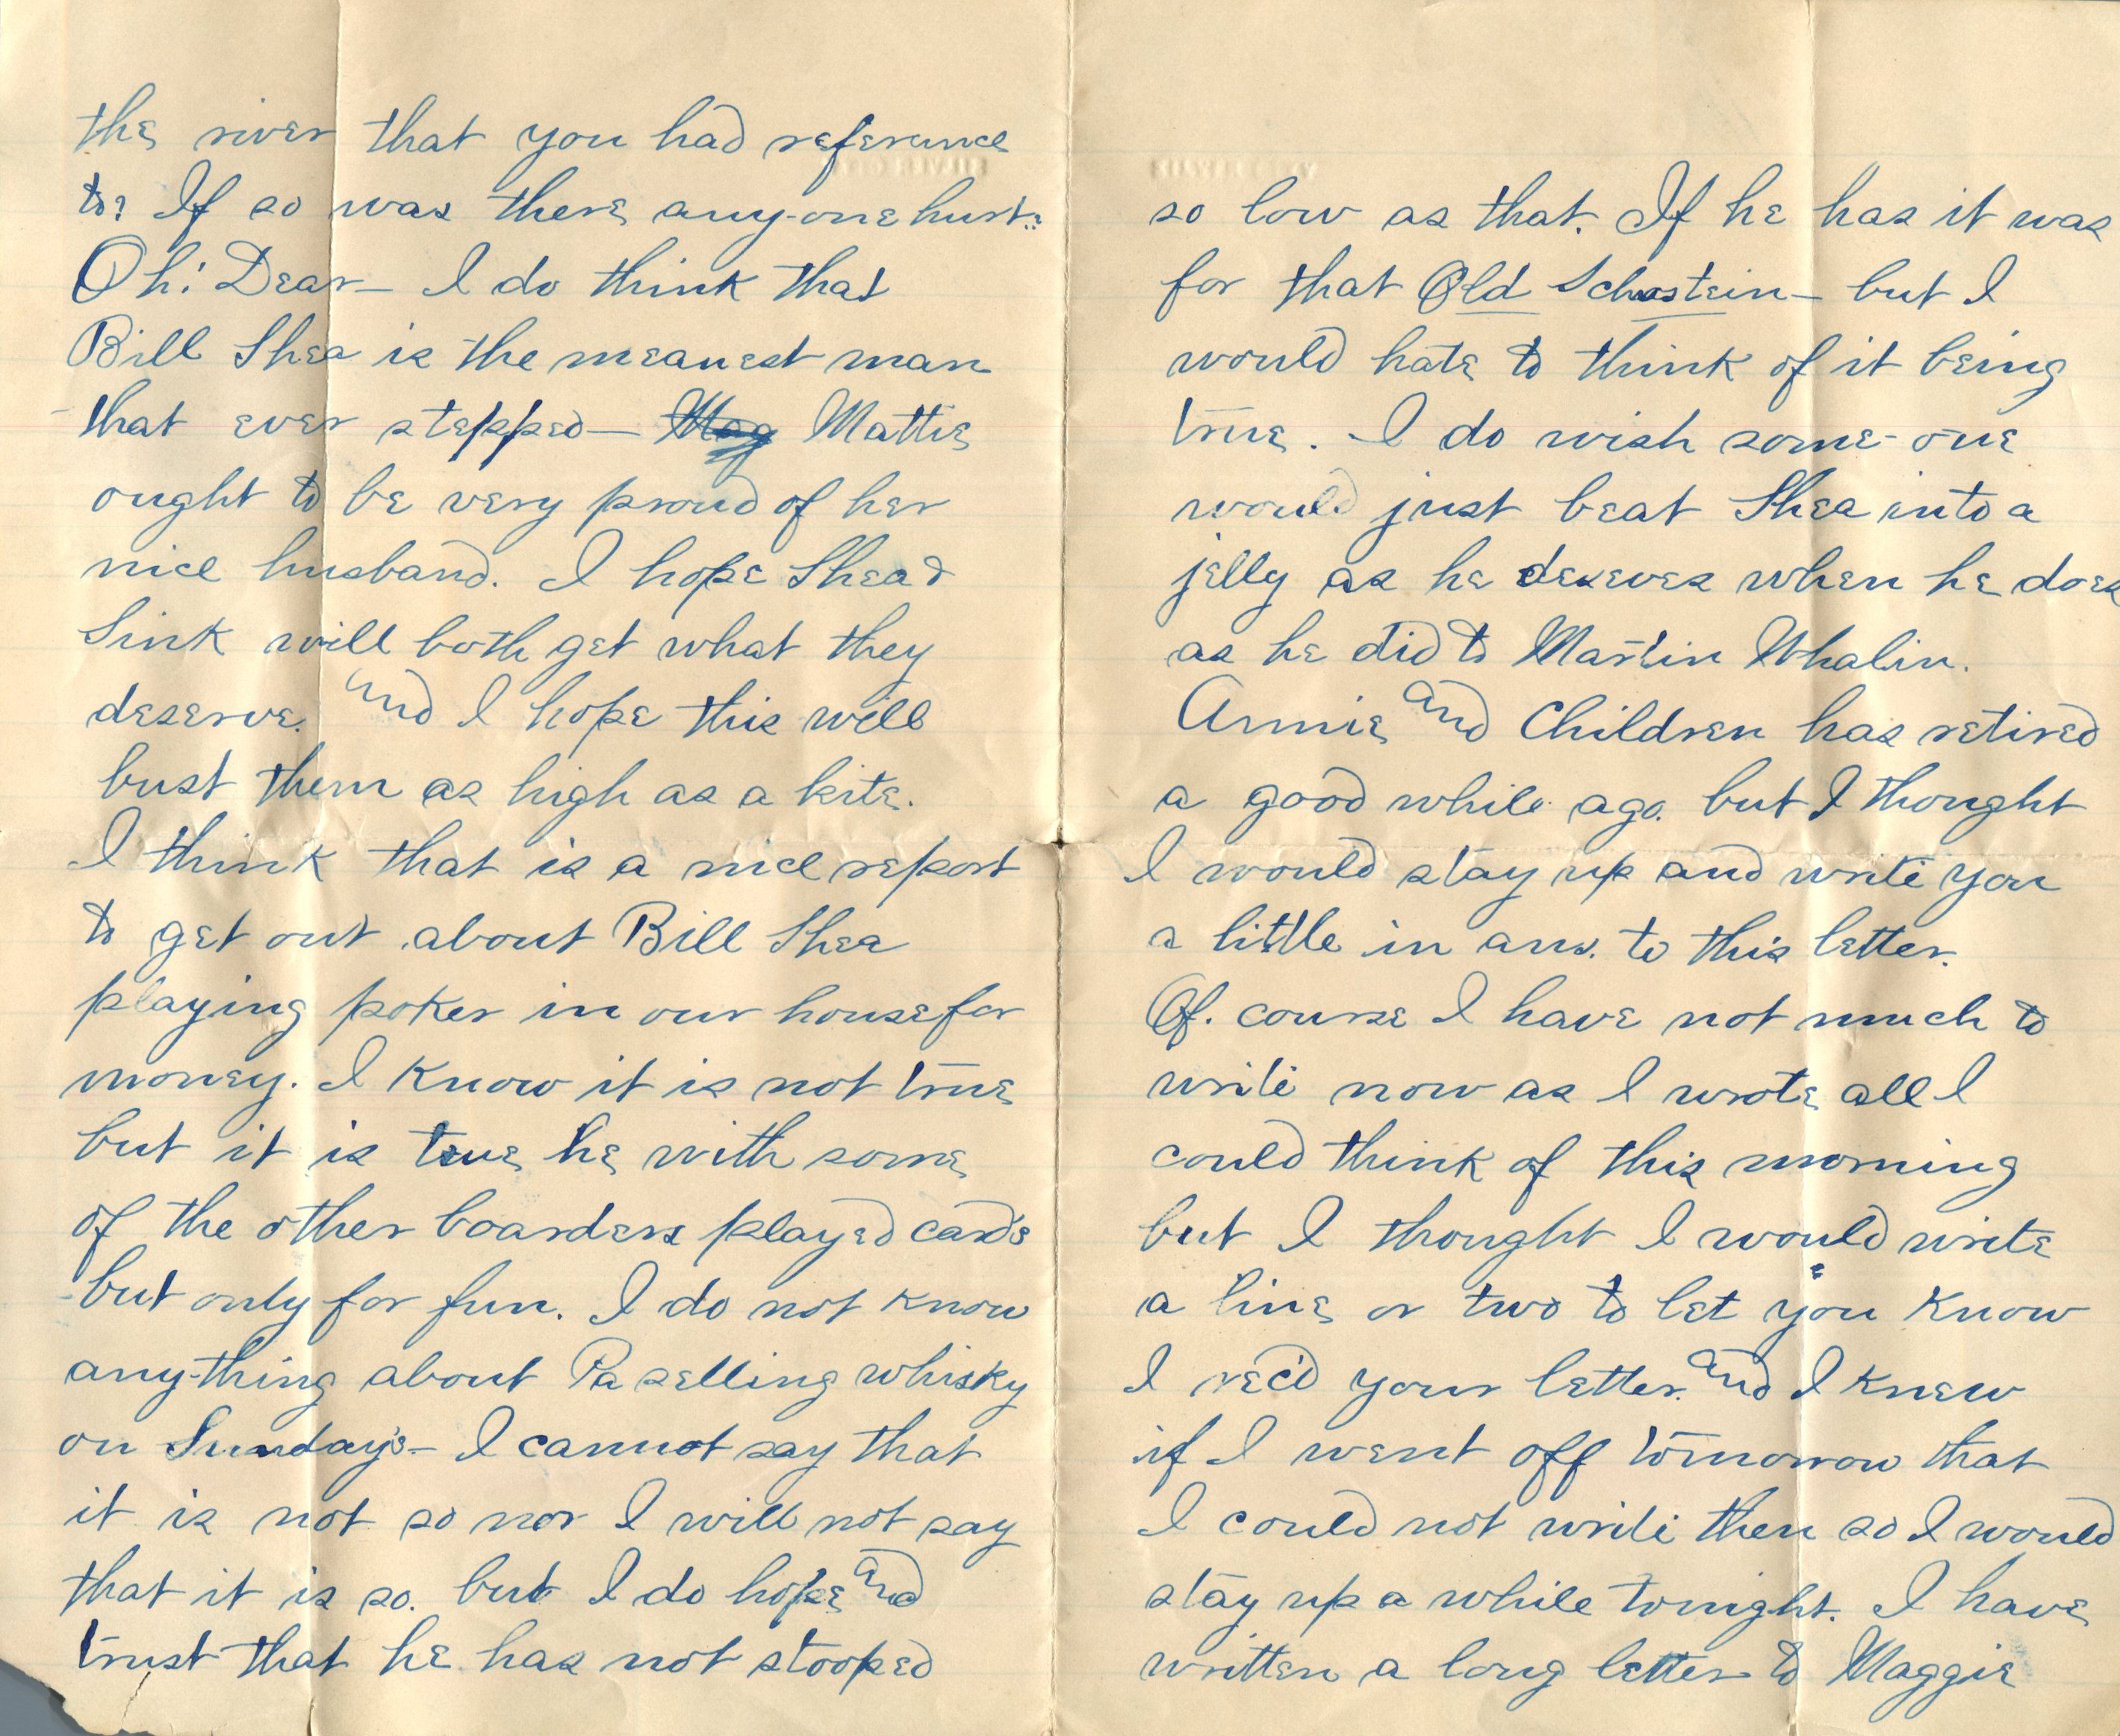 the river that you had reference
to? If so was there any-one hurt?
Oh! Dear— I do think that
Bill Shea is the meanest man
that ever stepped— Mag Mattie
ought to be very proud of her
nice husband. I hope Shea &
Sink will both get what they
deserve. and I hope this will
bust them as high as a kite.
I think that is a nice report
to get out about Bill Shea
playing poker in our house for
money. I know it is not true
but it is true he with some
of the other boarders played card's
but only for fun. I do not know
any-thing about Pa selling whisky
on Sunday's— I cannot say that
it is not so nor I will not say
that it is so. but I do hope and
trust that he has not stooped
so low as that. If he has it was
for that Old Schostein— but I
would hate to think of it being
true. I do wish some-one
would just beat Shea into a
jelly as he deseves when he does
as he did to Martin Whalin.
Annie and Children has retired
a good while ago. but I thought
I would stay up and write you
a little in ans. to this letter.
Of. course I have not much to
write now as I wrote all I
could think of this morning
but I thought I would write
a line or two to let you know
I rec'd your letter. and I knew
if I went off tomorrow that
I could not write then so I would
stay up a while tonight. I have
written a long letter to Maggie